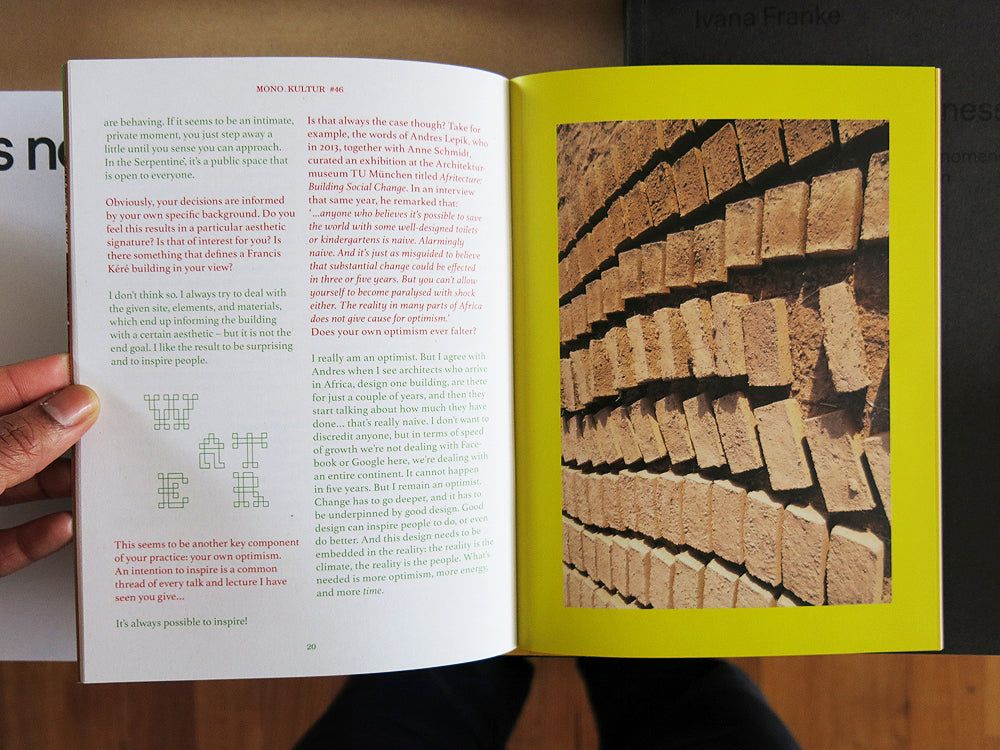 Ivana Franke
ness
s n
MONO.KULTUR #46
are behaving. If it seems to be an intimate,
private moment, you just step away a
little until you sense you can approach.
In the Serpentine, it's a public space that
is open to everyone.
Obviously, your decisions are informed
by your own specific background. Do you
feel this results in a particular aesthetic
signature? Is that of interest for you? Is
there something that defines a Francis
Kéré building in your view?
I don't think so. I always try to deal with
the given site, elements, and materials,
which end up informing the building
with a certain aesthetic – but it is not the
end goal. I like the result to be surprising
and to inspire people.
W
AT
ER
This seems to be another key component
of your practice: your own optimism.
An intention to inspire is a common
thread of every talk and lecture I have
seen you give...
It's always possible to inspire!
Is that always the case though? Take for
example, the words of Andres Lepik, who
in 2013, together with Anne Schmidt,
curated an exhibition at the Architektur-
museum TU München titled Afritecture:
Building Social Change. In an interview
that same year, he remarked that:
'...anyone who believes it's possible to save
the world with some well-designed toilets
or kindergartens is naive. Alarmingly
naive. And it's just as misguided to believe
that substantial change could be effected
in three or five years. But you can't allow
yourself to become paralysed with shock
either. The reality in many parts of Africa
does not give cause for optimism.'
Does your own optimism ever falter?
I really am an optimist. But I agree with
Andres when I see architects who arrive
in Africa, design one building, are there
for just a couple of years, and then they
start talking about how much they have
done... that's really naive. I don't want to
discredit anyone, but in terms of speed
of growth we're not dealing with Face-
book or Google here, we're dealing with
an entire continent. It cannot happen
in five years. But I remain an optimist.
Change has to go deeper, and it has to
be underpinned by good design. Good
design can inspire people to do, or even
do better. And this design needs to be
embedded in the reality: the reality is the
climate, the reality is the people. What's
needed is more optimism, more energy,
and more time.
20